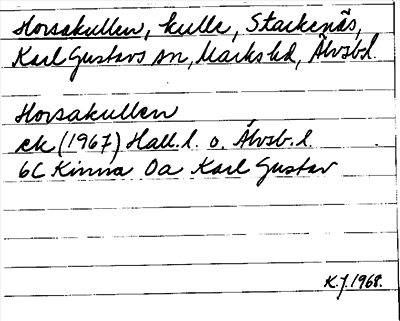 Horsakullen, kulle, Stackenäs,
Karl Gustavs sn, Marks hd, Älvsb.l.
Horsakullen
ek (1967) Hall.l. o. Älvsb.l.
6C Kinna 0a Karl Gustav
K.J. 1968.